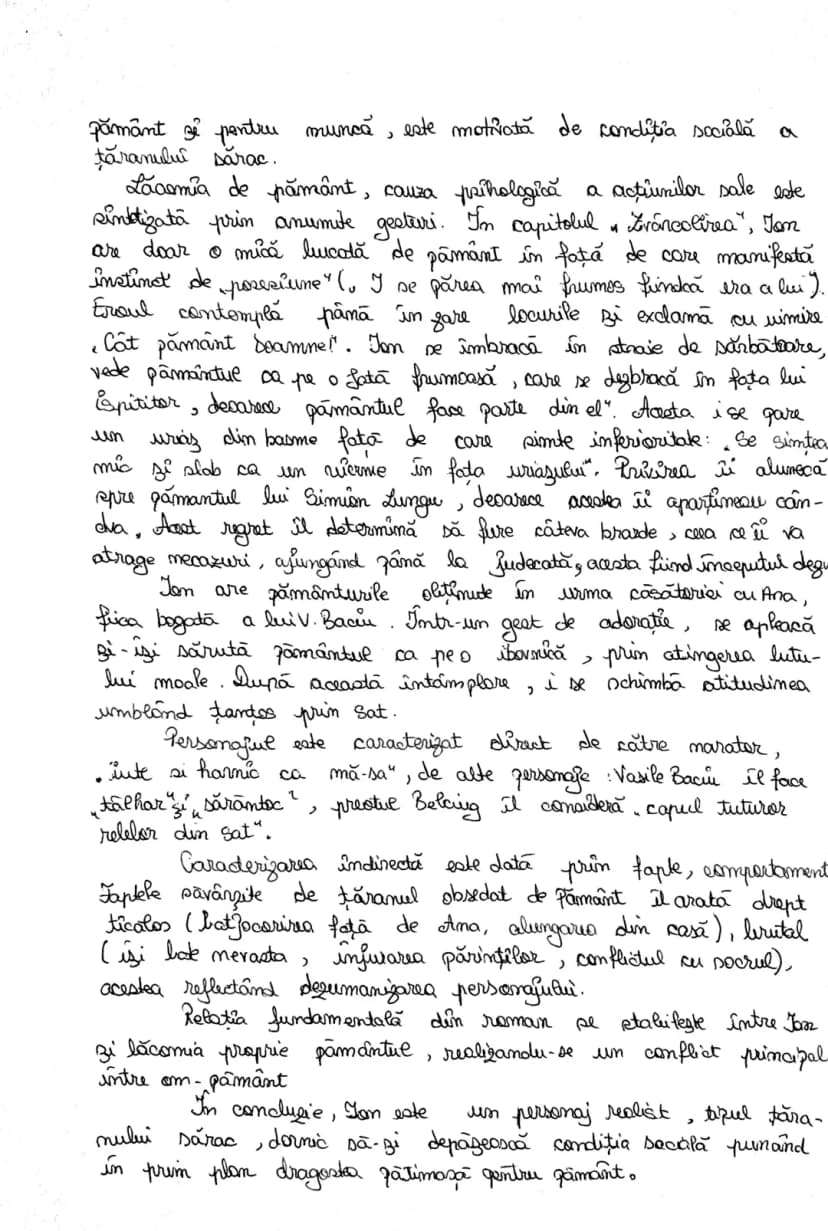 pământ și pentru muncă, este motivată de condiția socială a
țăranului sărac.
Lăcomia de pământ, cauza psihologică a acțiunilor sale este
sintetizată prin anumite gesturi. În capitolul „Zvârcolirea", Ion
are doar o mică bucată de pământ în față de care manifestă
instinct de „posesiune" („I se părea mai frumos fiindcă era a lui").
Eroul contemplă până în zare locurile și exclamă cu uimire
„Cât pământ Doamne!". Ion se îmbracă în straie de sărbătoare,
vede pământul ca pe o fată frumoasă, care se dezbracă în fața lui
Ispititor, deoarece pământul face parte din el". Acesta i se pare
un uriaș din basme față de care simte inferioritate: „Se simțea
mic și slab ca un vierme în fața uriașului". Privirea îi alunecă
spre pământul lui Simion Lungu, deoarece acestea îi aparțineau cân-
dva. Acest regret îl determină să fure câteva brazde, ceea ce îi va
atrage necazuri, ajungând până la judecată, acesta fiind începutul dezu
Ion are pământurile obținute în urma căsătoriei cu Ana,
fiica bogată a lui V. Baciu. Într-un gest de adorație, se apleacă
și-își sărută pământul ca pe o ibovnică, prin atingerea lutu-
lui moale. După această întâmplare, i se schimbă atitudinea
umblând țanțoș prin sat.
Personajul este caracterizat direct de către narator,
„iute și harnic ca mă-sa", de alte personaje: Vasile Baciu îl face
„tâlhar" și „sărântoc", preotul Belciug îl consideră „capul tuturor
relelor din sat".
Caracterizarea indirectă este dată prin fapte, comportament
Faptele săvârșite de țăranul obsedat de Pământ îl arată drept
ticălos (batjocorirea față de Ana, alungarea din casă), brutal
(își bate nevasta, înfuriarea părinților, conflictul cu socrul),
acestea reflectând dezumanizarea personajului.
Relația fundamentală din roman se stabilește între Ion
și lăcomia proprie pământul, realizandu-se un conflict principal
între om-pământ
În concluzie, Ion este un personaj realist, tipul țăra-
nului sărac, dornic să-și depășească condiția socială punând
în prim plan dragostea pătimașă pentru pământ.